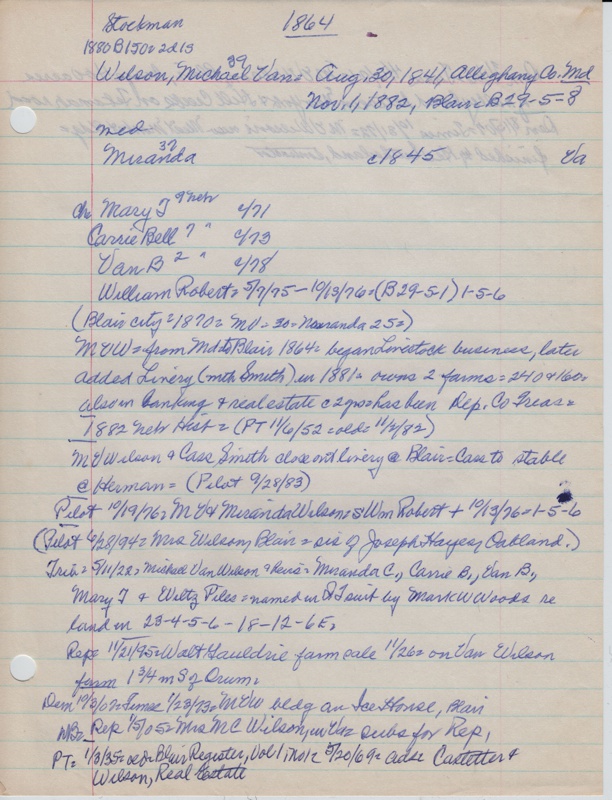 Stockman
1864
1880 B150= 2d13
39
Wilson, Michael Van= Aug, 30, 1841, Alleghany Co. Md
Nov. 1, 1882, Blair B29-5=8
med
37
Miranda c1845 Va
Ch. Mary J 9 Neb c/71
Carrie Bell 7 " c/73
Van B 2 " c/78
William Robert= 5/7/75 - 10/13/76= (B29-5-1) 1-5-6
(Blair city= 1870= MV= 30= Miranda 25=)
MVW= from Md to Blair 1864= began Livestock business, later
added Livery (with Smith) in 1881= owns 2 farms= 240 & 160=
also in banking & real estate c 2 yrs= has been Dep. Co Treas=
1882 Neb Hist= (PT 11/6/52= old= 11/2/82)
MVWilson & Cass Smith close out livery @ Blair= Cass to stable
@ Herman= (Pilot 9/28/83)
Pilot 10/19/76= MV & Miranda Wilson= s Wm Robert + 10/13/76= 1-5-6
(Pilot 6/28/94= Mrs Wilson, Blair= sis of Joseph Hayes, Oakland.)
Trib= 5/11/22= Michael Van Wilson & heirs= Miranda C., Carrie B., Van B.,
Mary J & Wiltz Piles= named in QT suit by Mark W Woods re
land in 23-4-5-6-18-12-6E,
Rep= 11/21/95= Walt Gauldrie farm sale 11/26= on Van Wilson
farm 1 3/4 m S of Orum=
Dem 10/3/07= Times 1/23/73= MVW bldg an Ice House, Blair
Rep 1/5/05= Mrs MC Wilson, in Va= subs for Rep,
PT= 1/3/35= old= Blair Register, Vol 1, No 1= 5/20/69= adse Castetter &
Wilson, Real Estate